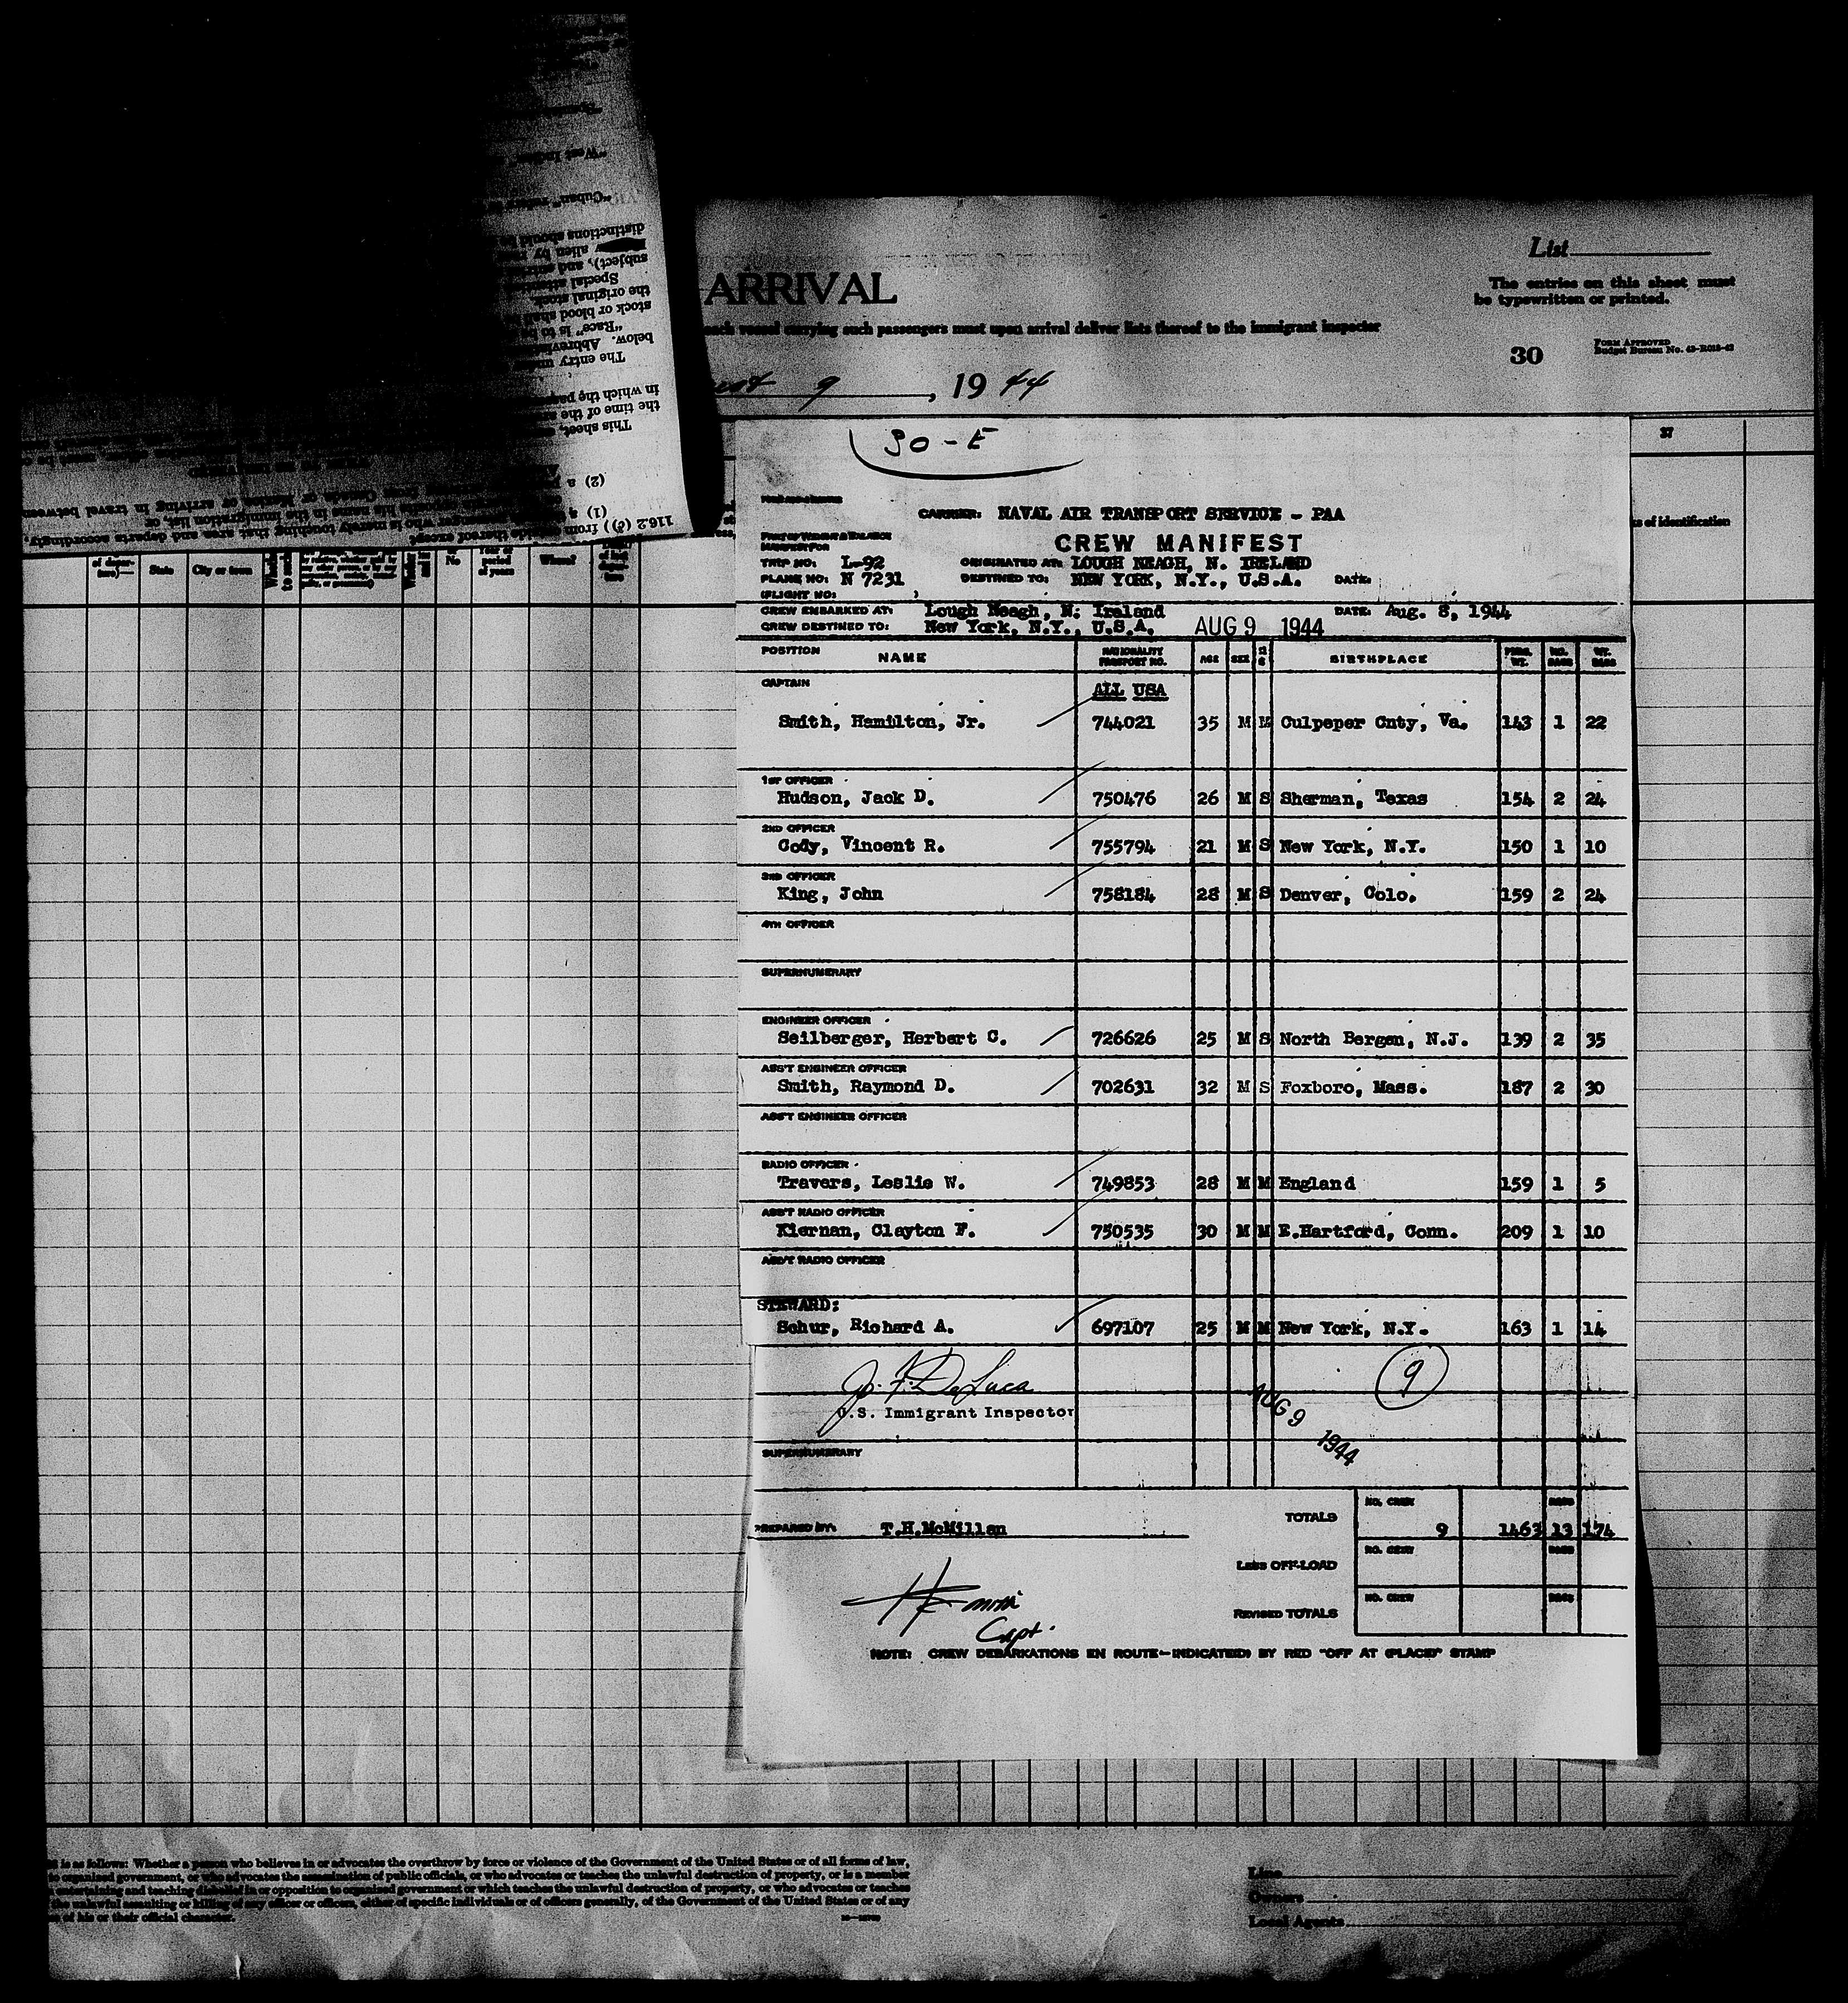 "West Indian"
"Cuban" refers
distinctions should
alien by
subject), and
Special
the original stock
stock or blood shall
"Race" is to be
below. Abbrevia
The entry under
in which the pa
the time of the
This sheet,
(2) a
(1) a
116.2 (d)) from
List
ARRIVAL
The entries on this sheet must
be typewritten or printed.
each vessel carrying such passengers must upon arrival deliver lists thereof to the immigrant inspector
30
FORM APPROVED
Budget Bureau No. 43-R018-42
9, 1944
37
of identification
State City or town
No.
Year or period of years
Where?
30-E
CARRIER: NAVAL AIR TRANSPORT SERVICE - PAA
CREW MANIFEST
TRIP NO: L-92 ORIGINATED AT: LOUGH NEAGH, N. IRELAND
PLANE NO: N 7231 DESTINED TO: NEW YORK, N.Y., U.S.A. DATE:
(FLIGHT NO: )
CREW EMBARKED AT: Lough Neagh, N. Ireland DATE: Aug. 8, 1944
CREW DESTINED TO: New York, N.Y., U.S.A. AUG 9 1944
POSITION NAME NATIONALITY PASSPORT NO. AGE SEX BIRTHPLACE PERS. WT. NO. BAGS WT. BAGS
CAPTAIN ALL USA
Smith, Hamilton, Jr. 744021 35 M M Culpeper Cnty, Va. 143 1 22
1ST OFFICER
Hudson, Jack D. 750476 26 M S Sherman, Texas 154 2 24
2ND OFFICER
Cody, Vincent R. 755794 21 M S New York, N.Y. 150 1 10
3RD OFFICER
King, John 758184 28 M S Denver, Colo. 159 2 24
4TH OFFICER
SUPERNUMERARY
ENGINEER OFFICER
Seilberger, Herbert C. 726626 25 M S North Bergen, N.J. 139 2 35
ASS'T ENGINEER OFFICER
Smith, Raymond D. 702631 32 M S Foxboro, Mass. 187 2 30
ASS'T ENGINEER OFFICER
RADIO OFFICER
Travers, Leslie W. 749853 28 M M England 159 1 5
ASS'T RADIO OFFICER
Kiernan, Clayton F. 750535 30 M M E.Hartford, Conn. 209 1 10
ASS'T RADIO OFFICER
STEWARD:
Schur, Richard A. 697107 25 M M New York, N.Y. 163 1 14
J. F. DeLuca 9
U.S. Immigrant Inspector AUG 9 1944
SUPERNUMERARY
PREPARED BY: T.H.McMillan TOTALS NO. CREW 9 1463 BAGS 13 174
LESS OFF-LOAD NO. CREW BAGS
H Smith
Capt.
REVISED TOTALS NO. CREW BAGS
NOTE: CREW DEBARKATIONS EN ROUTE—INDICATED BY RED "OFF AT (PLACE)" STAMP
is as follows: Whether a person who believes in or advocates the overthrow by force or violence of the Government of the United States or of all forms of law,
organized government, or who advocates the assassination of public officials, or who advocates or teaches the unlawful destruction of property, or is a member
entertaining and teaching disbelief in or opposition to organized government or which teaches the unlawful destruction of property, or who advocates or teaches
the unlawful assaulting or killing of any officer or officers, either of specific individuals or of officers generally, of the Government of the United States or of any
of his or their official character.
Line
Owners
Local Agents